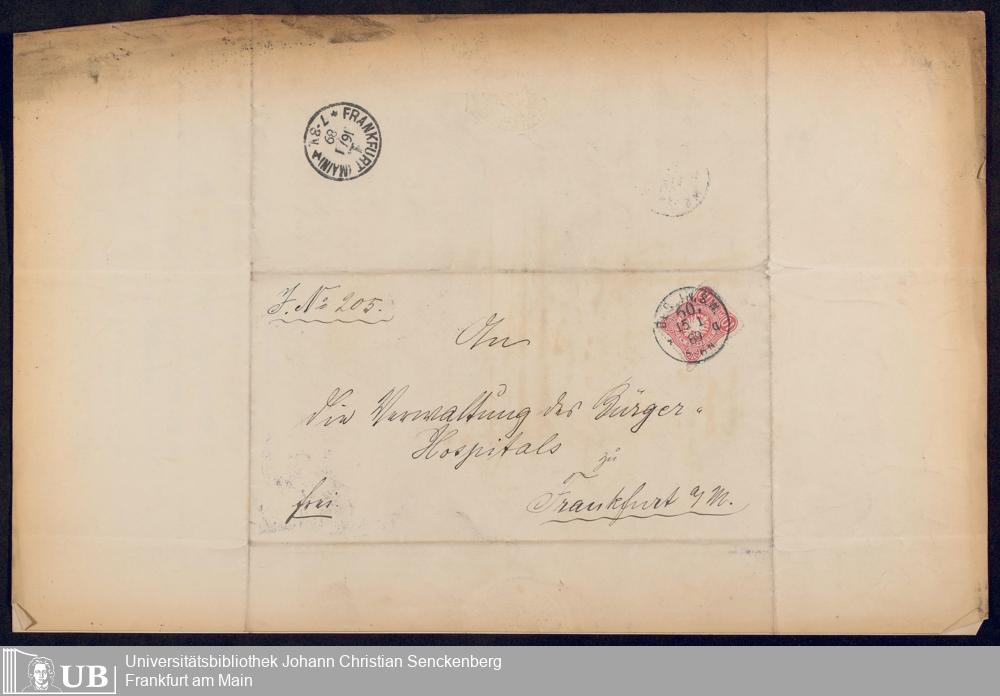 FRANKFURT (MAIN)
16/1
89
7-8V
J. No 205.
An
die Verwaltung des Bürger-
Hospitals
zu
Frankfurt a/M.
frei.
S.W.
15 1
89
Universitätsbibliothek Johann Christian Senckenberg
Frankfurt am Main
UB